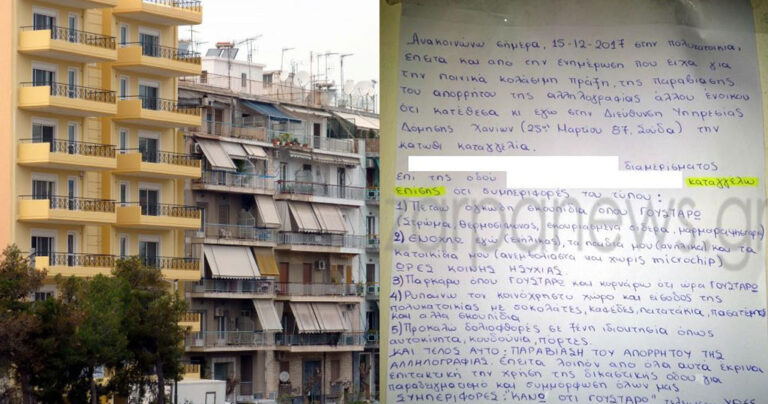 Ανακοινώνω σήμερα, 15-12-2017 στην πολυκατοικία,
έπειτα και από την ενημέρωση που είχα για
την ποινικά κολάσιμη πράξη, της παραβίασης
του απορρήτου της αλληλογραφίας άλλου ένοικου
ότι κατέθεσα κι εγώ στην Διεύθυνση Υπηρεσίας
Δόμησης Χανίων (25ης Μαρτίου 87, Σούδα) την
κάτωθι καταγγελία.
διαμερίσματος
επί της οδού καταγγέλω
επίσης ότι συμπεριφορές του τύπου:
1) Πετάω ογκώδη σκουπίδια όπου ΓΟΥΣΤΑΡΩ
(στρώμα, θερμοσίφωνας, σκουριασμένα σίδερα, μαρμαροψήφιδα)
2) ΕΝΟΧΛΩ εγώ (ενήλικας), τα παιδιά μου (ανήλικα) και τα
κατοικίδιά μου (ανεμβολίαστα και χωρίς microchip)
ΩΡΕΣ ΚΟΙΝΗΣ ΗΣΥΧΙΑΣ.
3) Παρκάρω όπου ΓΟΥΣΤΑΡΩ και κορνάρω ότι ώρα ΓΟΥΣΤΑΡΩ
4) Ρυπαίνω τον κοινόχρηστο χώρο και είσοδο της
πολυκατοικίας με σοκολάτες, καφέδες, πατατάκια,
και άλλα σκουπίδια
5) Προκαλώ δολιοφθορές σε ξένη ιδιοκτησία όπως
αυτοκίνητα, κουδούνια, πόρτες.
ΚΑΙ ΤΕΛΟΣ ΑΥΤΟ: ΠΑΡΑΒΙΑΣΗ ΤΟΥ ΑΠΟΡΡΗΤΟΥ ΤΗΣ
ΑΛΛΗΛΟΓΡΑΦΙΑΣ. Έπειτα λοιπόν από όλα αυτά έκρινα
επιτακτική την χρήση της δικαστικής οδού για
παραδειγματισμό και συμμόρφωση όλων μας
ΣΥΜΠΕΡΙΦΟΡΕΣ: "ΚΑΝΩ ΟΤΙ ΓΟΥΣΤΑΡΩ"
zarpanews.gr